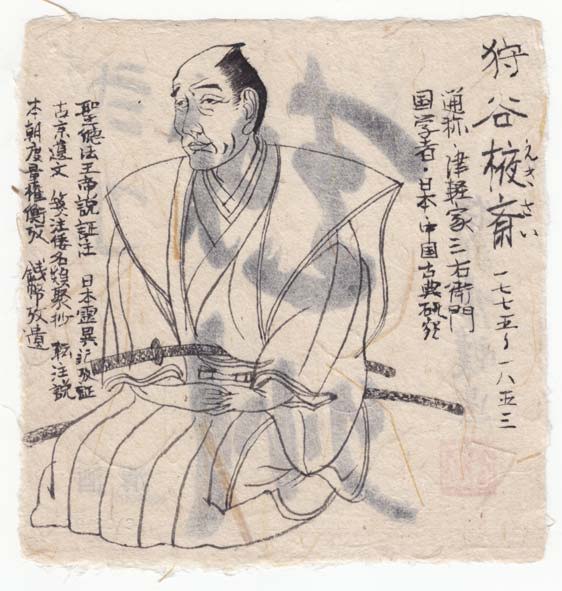 狩谷棭斎
えきさい
一七七五〜一八五三
通称・津軽家三右衛門
国学者・日本・中国古典研究
聖徳法王帝説証注 日本霊異記攷証
古京遺文 箋注倭名類聚抄 転注説
本朝度量権衡攷 銭幣攷遺